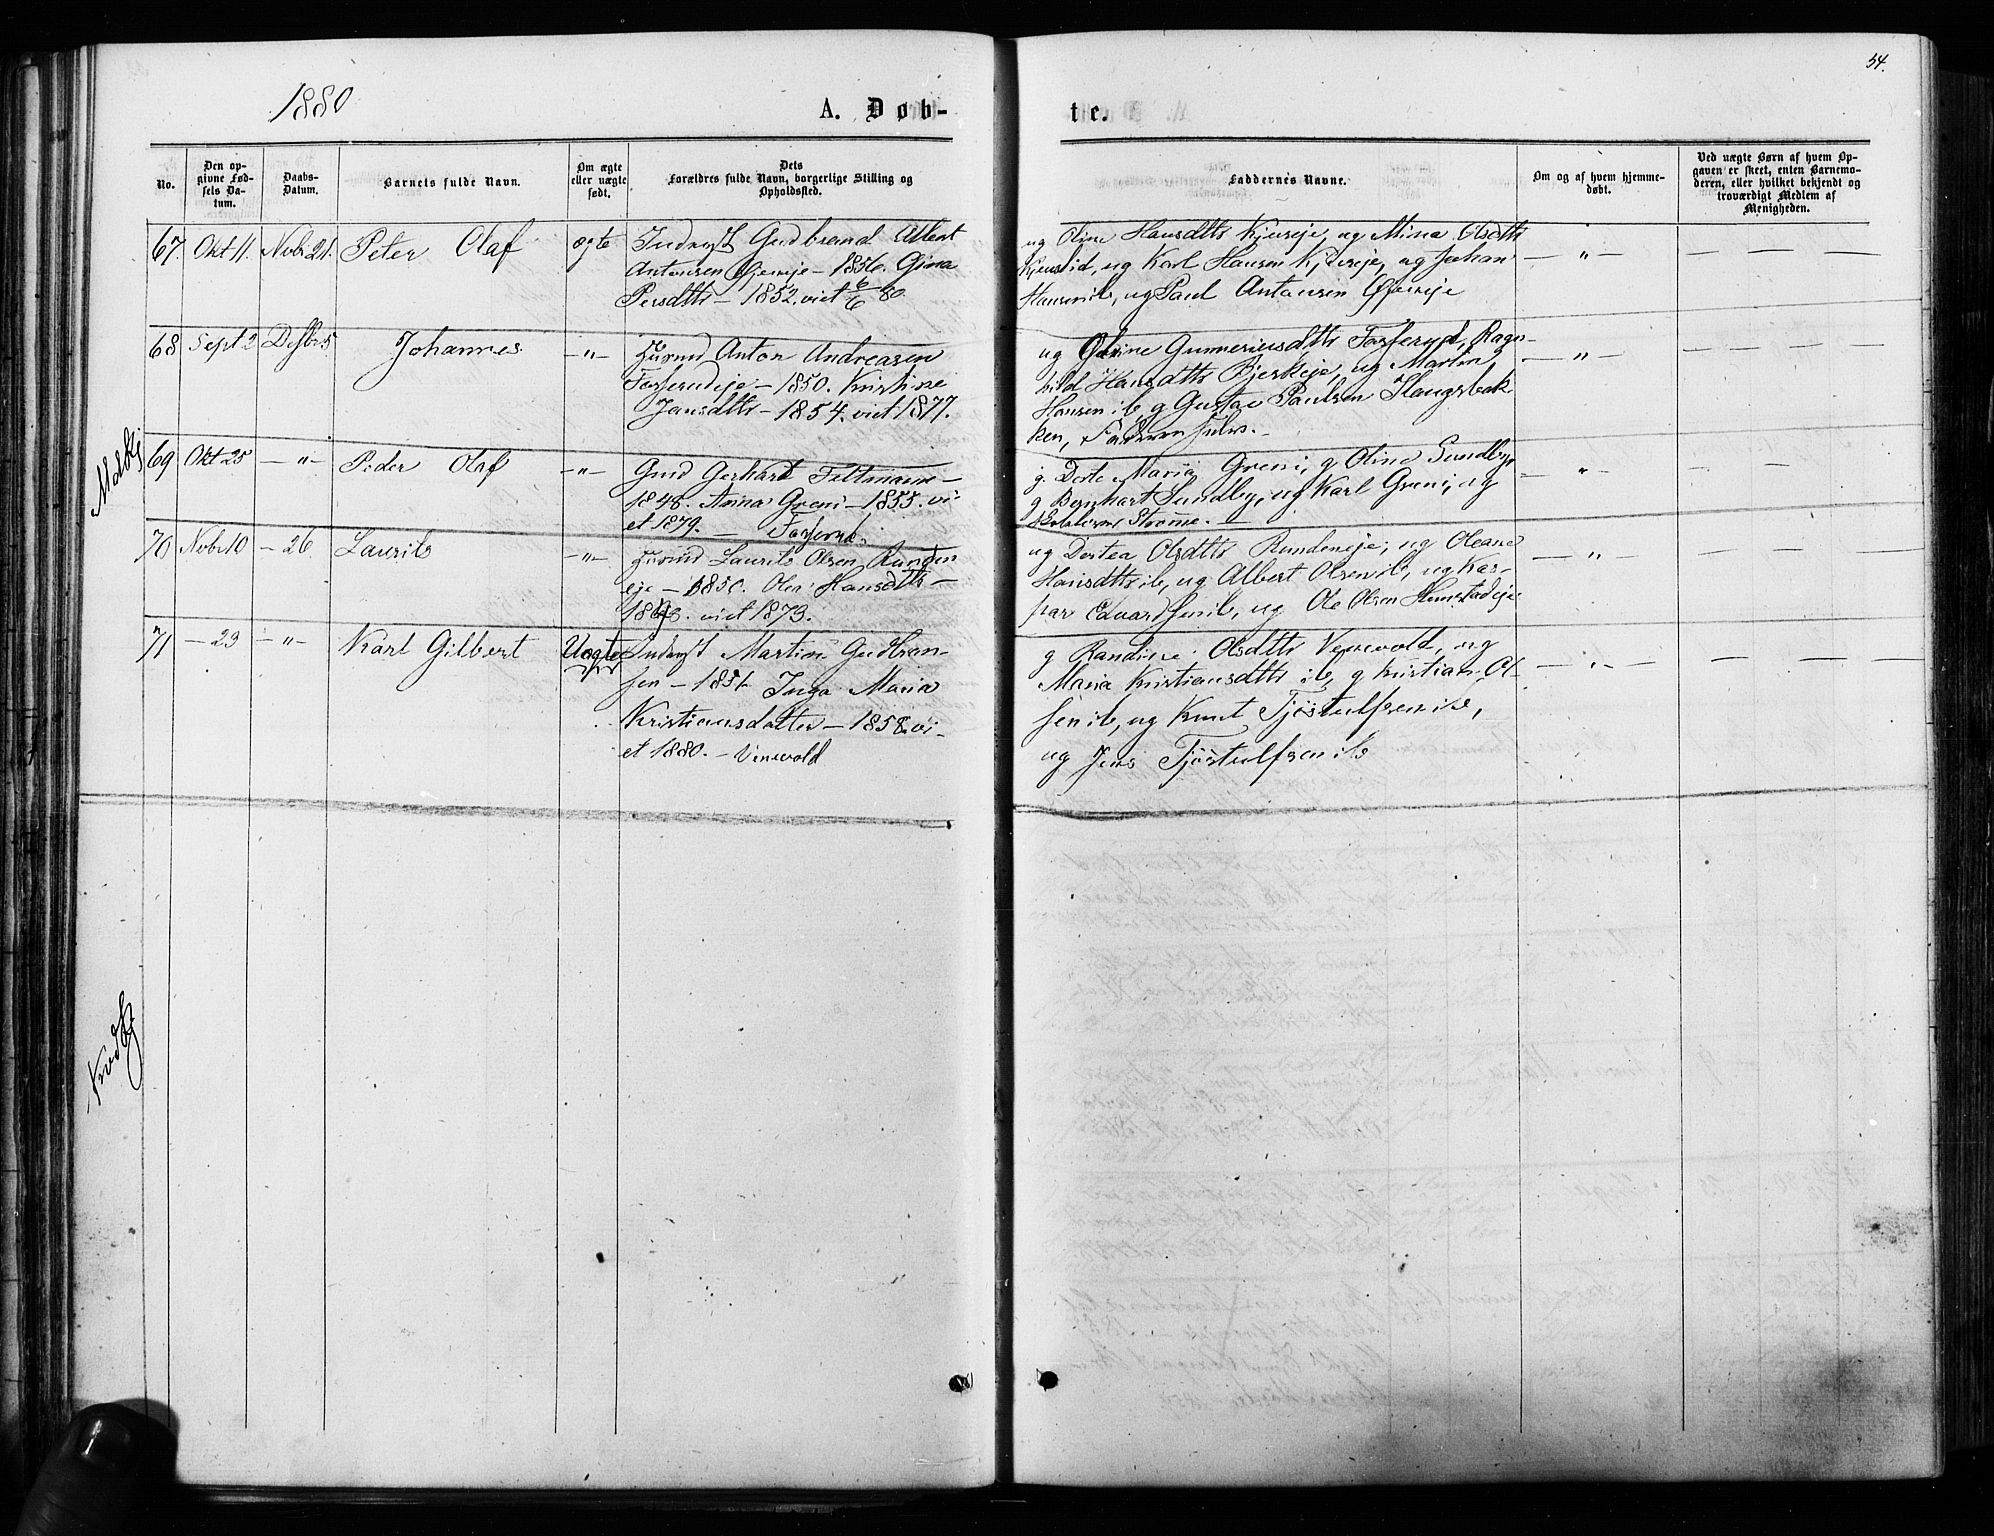 54.
1880
A. Døb-
te.
No.
Den op-
givne Fød-
sels Da-
tum.
Daabs-
Datum.
Barnets fulde Navn.
Om ægte
eller uægte
født.
Dets
Forældres fulde Navn, borgerlige Stilling og
Opholdssted.
Faddernes Navne.
Om og af hvem hjemme-
døbt.
Ved uægte Børn af hvem Op-
gaven er skeet, enten Barnemo-
deren, eller hvilket bekjendt og
troværdigt Medlem af
Menigheden.
67. Okt 11. Novbr 21. Peter Olaf ægte Inderst Gudbrand Albert
Antonsen – 1856. Gina
Persdtr – 1852. viet 6/6 80.
ug Oline Hansdtr ug Mina Olsdtr
ug Karl Hansen ug Johan
Hansen ib, ug Paul Antonsen
— " —
68 Sept 2 Desbr 5 Johannes —"— Husmd Anton Andreasen
Fosserudeje – 1850. Kristine
Jansdtr – 1854. viet 1877.
ug Gunneriusdtr Fosserud, Ragn-
hild Hansdtr Bjerkeje, ug Martin
Hansen ib, g Gustav Paulsen Haugsbak-
ken,
— " —
69 Okt 25 —"— Peder Olaf —"— Gmd Gerhart Feltmann –
1848. Anna Greni – 1855. vi-
et 1879. — Fosserud.
g. Dorte Maria Greni, g Olina Sundby
g Bernhart Sundby, ug Karl Greni, ug
Strøme. —
— " —
70 Novbr 10 — 26. Laurits —"— Husmd Laurits Olsen Runden-
eje – 1850. Hansdtr –
viet 1873.
ug Dortea Olsdtr Rundeneje, ug Oleane
Hansdtr ib, ug Albert Olsen ib, ug Kas-
par Edvardsen ib, ug Ole Olsen
— " —
71 — 23 —"— Karl Gilbert Uægte Inderst Martin Gudbran-
sen – Inga Maria
Kristiansdatter – 1858. vi-
et 1880. – Venevold
g Randine Olsdtr Venevold, ug
Maria Kristiansdtr ib, g Kristian Ol-
sen ib, ug Knut Tjøstulfsen ib,
ug Jens Tjøstulfsen ib
— " —